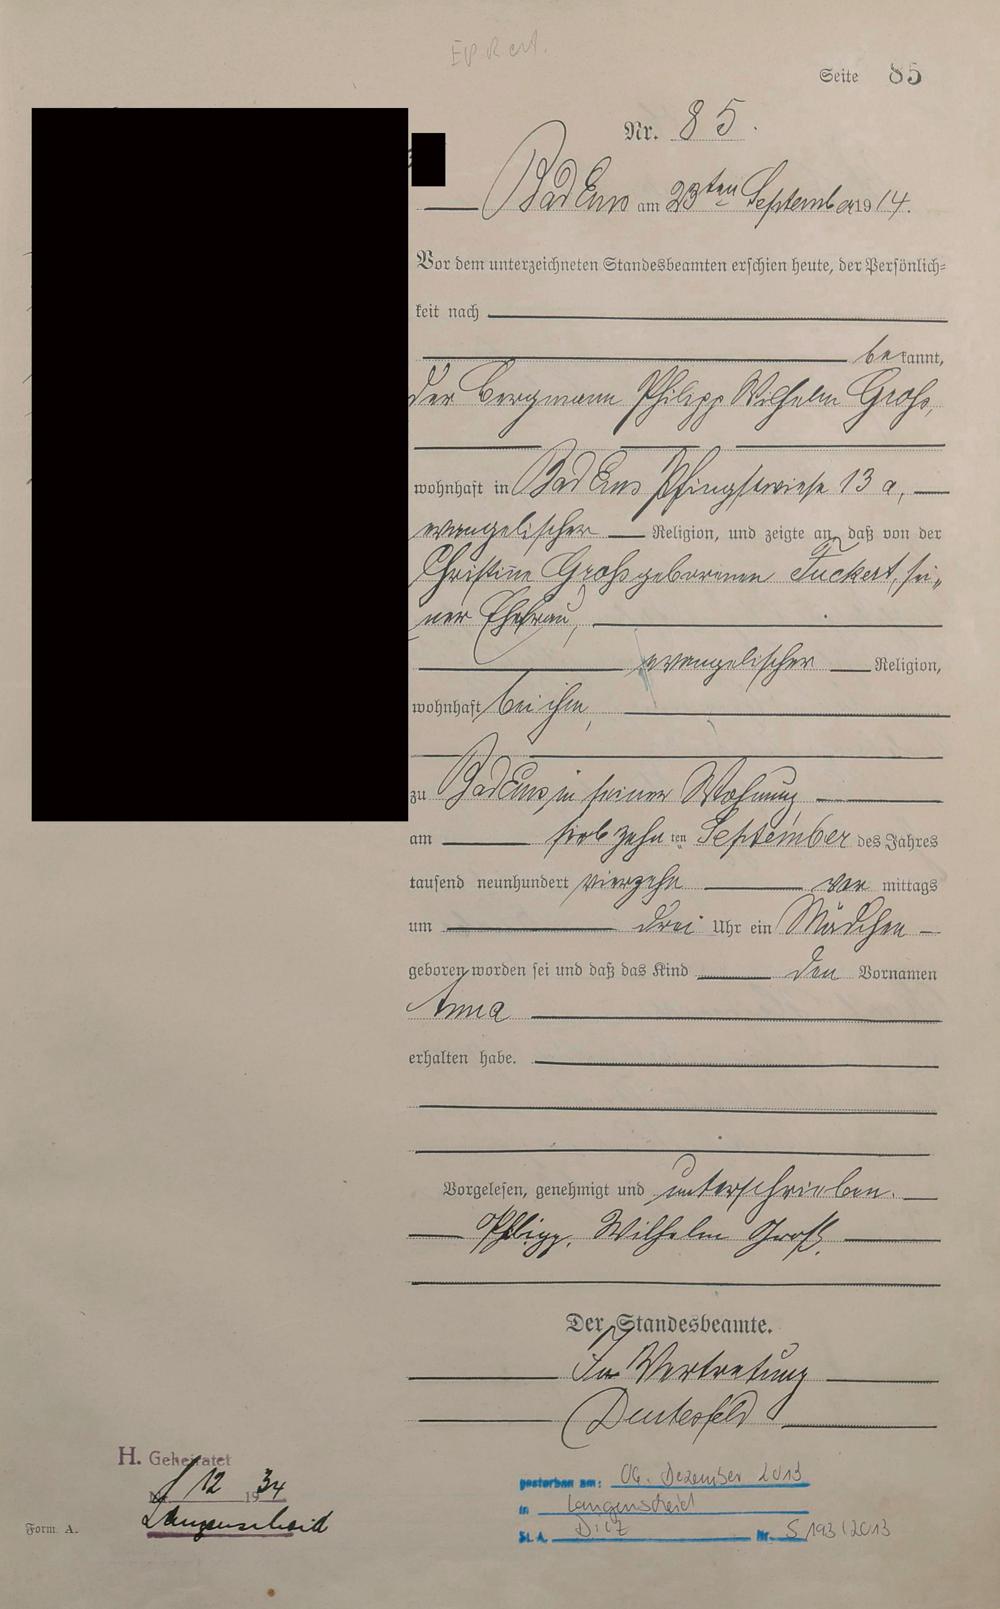 Seite 85
Nr. 85.
Bad Ems am 23ten September 1914.
Vor dem unterzeichneten Standesbeamten erschien heute, der Persönlich=
keit nach
bekannt,
der Bergmann Philipp Wilhelm Groß,
wohnhaft in Bad Ems Pfingstwiese 13 a,
evangelischer Religion, und zeigte an, daß von der
Christine Groß geborenen Tuckert, sei=
ner Ehefrau,
evangelischer Religion,
wohnhaft bei ihm,
zu Bad Ems, in seiner Wohnung
am siebzehnten September des Jahres
tausend neunhundert vierzehn vor mittags
um drei Uhr ein Mädchen
geboren worden sei und daß das Kind den Vornamen
Anna
erhalten habe.
Vorgelesen, genehmigt und unterschrieben.
Philipp. Wilhelm Groß.
Der Standesbeamte.
In Vertretung
H. Geheiratet
12 1934
Langenscheid
gestorben am: 06. Dezember 2013
in Langenscheid
St. A. Diez Nr. S 193/2013
Form. A.